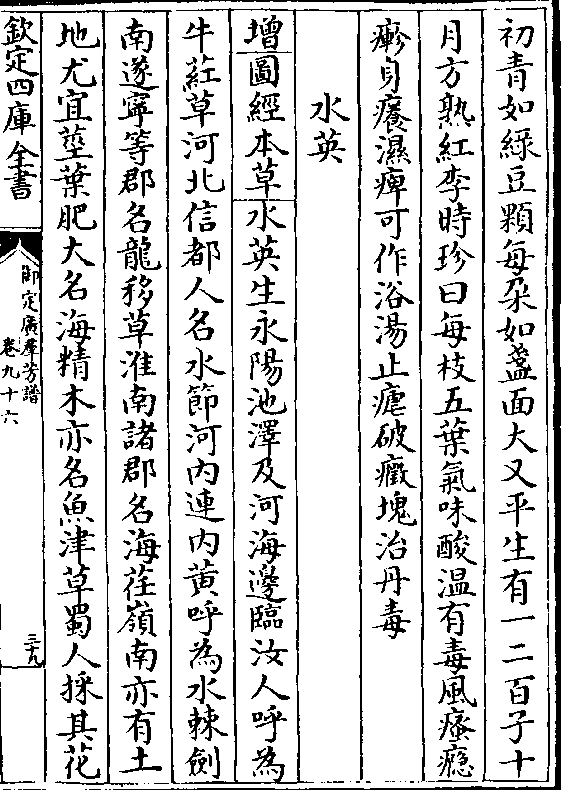 初青如綠豆顆每朶如盞面大又平生有一二百子十
月方熟紅李時珍曰每枝五葉氣味酸温有毒風瘙癮
㾦身癢濕痺可作浴湯止瘧破癥塊治丹毒
水英
增圖經本草水英生永陽池澤及河海邊臨汝人呼為
牛葒草河北信都人名水節河内連内黄呼為水棘劍
南遂寧等郡名龍移草淮南諸郡名海荏嶺南亦有土
地尤宜莖葉肥大名海精木亦名魚津草蜀人採其花
欽定四庫全書
御定廣羣芳譜
卷九十六
三十九